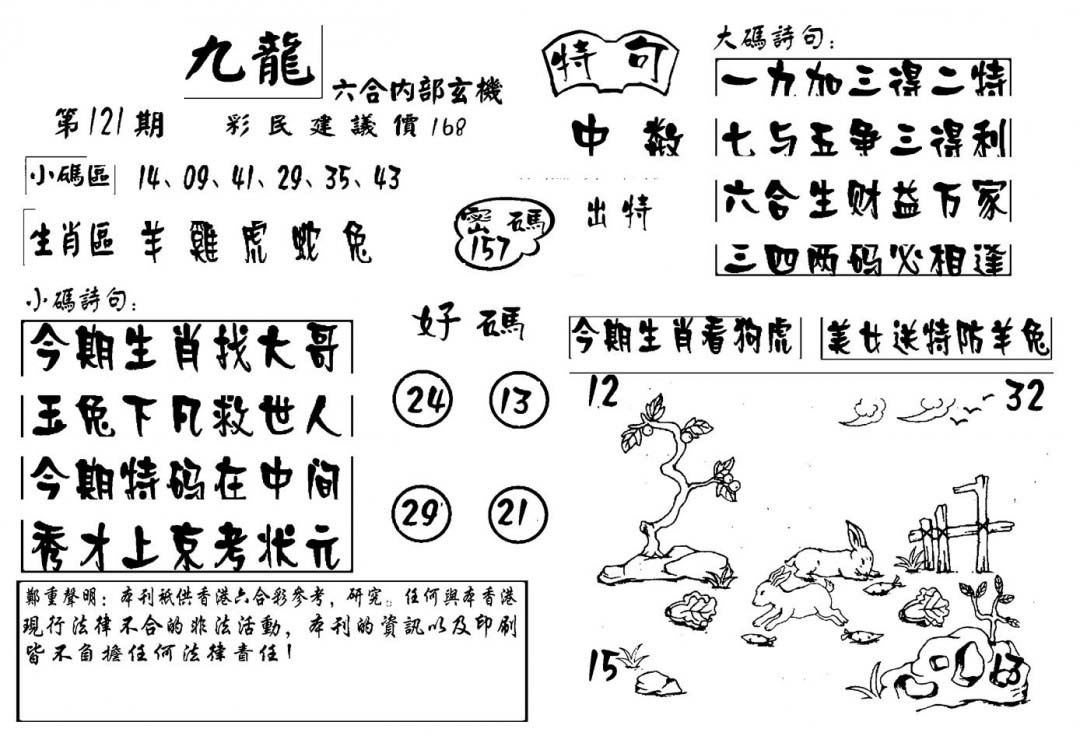 九龍
六合内部玄機
第121期
彩民建議價168
小碼區 14、09、41、29、35、43
生肖區 羊 雞 虎 蛇 兔
密碼
157
特句
中数
出特
大碼詩句：
一力加三得二特
七与五争三得利
六合生财益万家
三四两码必相逢
小碼詩句：
今期生肖找大哥
玉兔下凡救世人
今期特码在中间
秀才上京考状元
好碼
24 13
29 21
今期生肖看狗虎
美女送特防羊兔
12 32
15 13
鄭重聲明：本刊衹供香港六合彩參考，研究。任何與本香港
現行法律不合的非法活動，本刊的資訊以及印刷
皆不負擔任何法律責任！